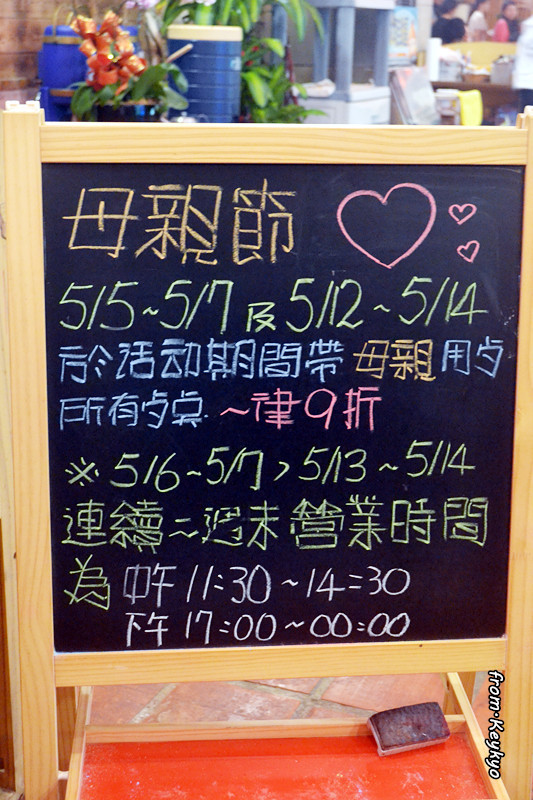 母親節
5/5~5/7 及 5/12~5/14
於活动期間帶母親用歺
所有歺桌 ~律9折
※ 5/6~5/7，5/13~5/14
連續二週末營業時間
為 中午 11:30~14:30
下午 17:00~00:00
from·Keykyo